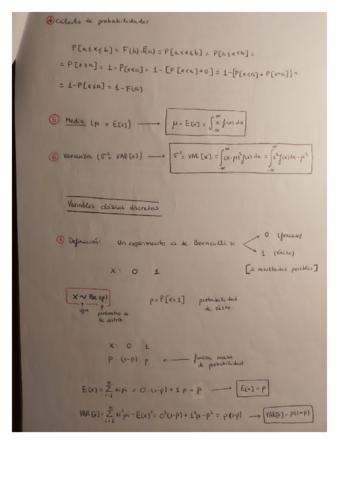 ④ Cálculo de probabilidades
P[a≤x≤b] = F(b)-F(a) = P[a<x≤b] = P[a≤x<b] =
= P[x≥a] = 1-P[x<a] = 1-[P[x<a]+0] = 1-[P[x<a]+P[x=a]] =
= 1-P[x≤a] = 1-F(a)
⑤ Media (μ = E[x]) → μ = E[x] = ∫ x f(x) dx
⑥ Varianza (σ² = VAR[x]) → σ² = VAR[x] = ∫(x-μ)² f(x) dx = ∫x² f(x) dx - μ²
Variables clásicas discretas
Definición: Un experimento es de Bernoulli si
0 (fracaso)
1 (éxito)
[2 resultados posibles]
X: 0 1
X ~ Be(p)
p = P[x=1] probabilidad de éxito.
sigue
parámetro de la distrib.
X: 0 1
P (1-p) p ← función masa de probabilidad
E[x] = Σ xi pi = 0·(1-p) + 1·p = p → E[x] = p
VAR[x] = Σ xi² pi - E[x]² = 0²(1-p) + 1²p - p² = p(1-p) → VAR[x] = p(1-p)